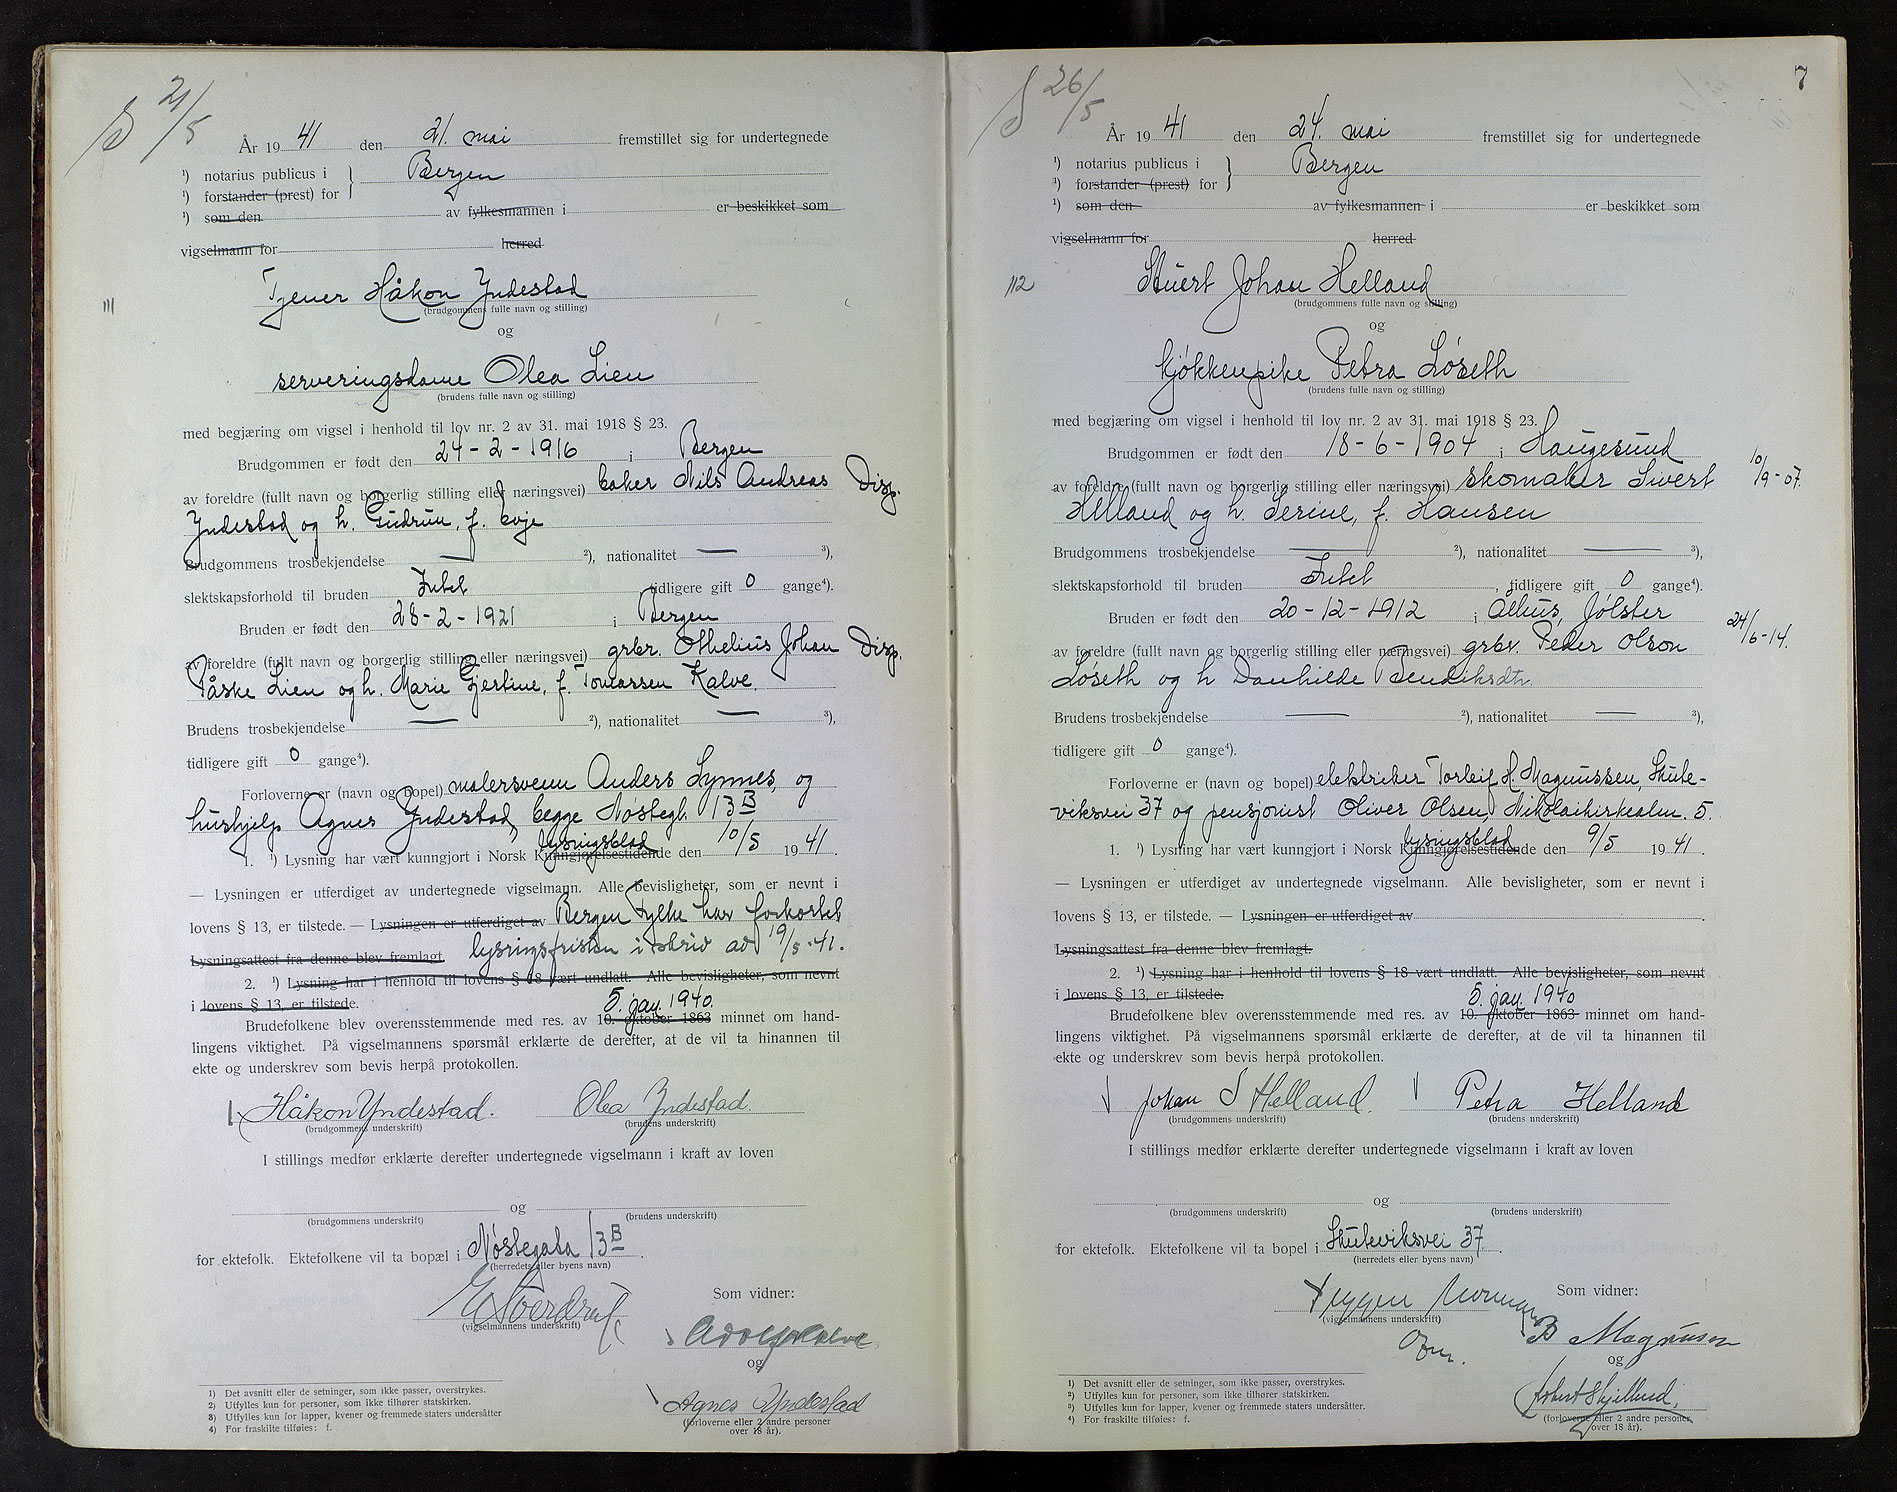 S 21/5
År 19 41 den 21. mai fremstillet sig for undertegnede
¹) notarius publicus i Bergen
¹) forstander (prest) for
¹) som den av fylkesmannen i er beskikket som
vigselmann for herred
111 Tjener Håkon Yndestad
(brudgommens fulle navn og stilling)
og
serveringsdame Olea Lien
(brudens fulle navn og stilling)
med begjæring om vigsel i henhold til lov nr. 2 av 31. mai 1918 § 23.
Brudgommen er født den 24-2-1916 i Bergen
av foreldre (fullt navn og borgerlig stilling eller næringsvei) baker Nils Andreas Disp.
Yndestad og h. Gudrun, f. Koje
Brudgommens trosbekjendelse — ²), nationalitet — ³),
slektskapsforhold til bruden Intet tidligere gift 0 gange⁴).
Bruden er født den 28-2-1921 i Bergen
av foreldre (fullt navn og borgerlig stilling eller næringsvei) grbr. Othelius Johan Disp.
Påske Lien og h. Marie Gjertine, f. Tomassen Kalve.
Brudens trosbekjendelse — ²), nationalitet — ³),
tidligere gift 0 gange⁴).
Forloverne er (navn og bopel) malersvenn Anders Synnes, og
hushjelp Agnes Yndestad, begge Nøstegt. 13 B
lysingsblad
1. ¹) Lysning har vært kunngjort i Norsk Kunngjørelsestidende den 10/5 19 41.
— Lysningen er utferdiget av undertegnede vigselmann. Alle bevisligheter, som er nevnt i
lovens § 13, er tilstede. — Lysningen er utferdiget av Bergen Fylke har forkortet
Lysningsattest fra denne blev fremlagt. lysingsfristen i skriv av 19/5-41.
2. ¹) Lysning har i henhold til lovens § 18 vært undlatt. Alle bevisligheter, som nevnt
i lovens § 13, er tilstede.
5. jan. 1940.
Brudefolkene blev overensstemmende med res. av 10. oktober 1863 minnet om hand-
lingens viktighet. På vigselmannens spørsmål erklærte de derefter, at de vil ta hinannen til
ekte og underskrev som bevis herpå protokollen.
Håkon Yndestad. Olea Yndestad.
(brudgommens underskrift) (brudens underskrift)
I stillings medfør erklærte derefter undertegnede vigselmann i kraft av loven
og
(brudgommens underskrift) (brudens underskrift)
for ektefolk. Ektefolkene vil ta bopæl i Nøstegata 13 B.
(herredets eller byens navn)
Som vidner:
(vigselmannens underskrift)
Adolf Kalve
og
Agnes Yndestad
(forloverne eller 2 andre personer
over 18 år).
1) Det avsnitt eller de setninger, som ikke passer, overstrykes.
2) Utfylles kun for personer, som ikke tilhører statskirken.
3) Utfylles kun for lapper, kvener og fremmede staters undersåtter
4) For fraskilte tilføies: f.
S 26/5 7
År 19 41 den 24. mai fremstillet sig for undertegnede
¹) notarius publicus i Bergen
¹) forstander (prest) for
¹) som den av fylkesmannen i er beskikket som
vigselmann for herred
112 Stuert Johan Helland
(brudgommens fulle navn og stilling)
og
kjøkkenpike Petra Løseth
(brudens fulle navn og stilling)
med begjæring om vigsel i henhold til lov nr. 2 av 31. mai 1918 § 23.
Brudgommen er født den 18-6-1904 i Haugesund
av foreldre (fullt navn og borgerlig stilling eller næringsvei) skomaker Sivert 10/9-07.
Helland og h. Serine, f. Hansen
Brudgommens trosbekjendelse — ²), nationalitet — ³),
slektskapsforhold til bruden Intet, tidligere gift 0 gange⁴).
Bruden er født den 20-12-1912 i Ålhus, Jølster
av foreldre (fullt navn og borgerlig stilling eller næringsvei) grbr. Peder Olson 24/6-14.
Løseth og h Danhilde Bendiksdtr.
Brudens trosbekjendelse — ²), nationalitet — ³),
tidligere gift 0 gange⁴).
Forloverne er (navn og bopel) elektriker Torleif H. Magnussen, Skute-
viksvei 37 og pensjonist Oliver Olsen, Nikolaikirkealm. 5.
lysingsblad
1. ¹) Lysning har vært kunngjort i Norsk Kunngjørelsestidende den 9/5 19 41.
— Lysningen er utferdiget av undertegnede vigselmann. Alle bevisligheter, som er nevnt i
lovens § 13, er tilstede. — Lysningen er utferdiget av
Lysningsattest fra denne blev fremlagt.
2. ¹) Lysning har i henhold til lovens § 18 vært undlatt. Alle bevisligheter, som nevnt
i lovens § 13, er tilstede.
5. jan. 1940
Brudefolkene blev overensstemmende med res. av 10. oktober 1863 minnet om hand-
lingens viktighet. På vigselmannens spørsmål erklærte de derefter, at de vil ta hinannen til
ekte og underskrev som bevis herpå protokollen.
Johan S Helland. Petra Helland
(brudgommens underskrift) (brudens underskrift)
I stillings medfør erklærte derefter undertegnede vigselmann i kraft av loven
og
(brudgommens underskrift) (brudens underskrift)
for ektefolk. Ektefolkene vil ta bopel i Skuteviksvei 37.
(herredets eller byens navn)
Som vidner:
(vigselmannens underskrift)
B Magnusen
og
(forloverne eller 2 andre personer,
over 18 år).
¹) Det avsnitt eller de setninger, som ikke passer, overstrykes.
²) Utfylles kun for personer, som ikke tilhører statskirken.
³) Utfylles kun for lapper, kvener og fremmede staters undersåtter.
⁴) For fraskilte tilføies: f.